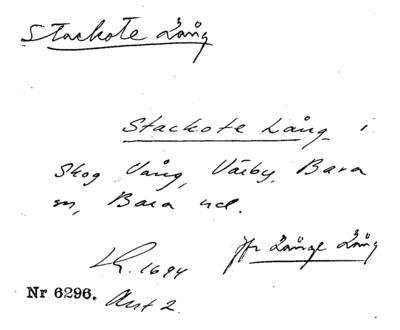 Stackote Lång
Stackote Lång i
Skog Vång, Värby, Bara
sn, Bara hd.
LR. 1694 jfr Långe Lång
Nr 6296. Akt 2.